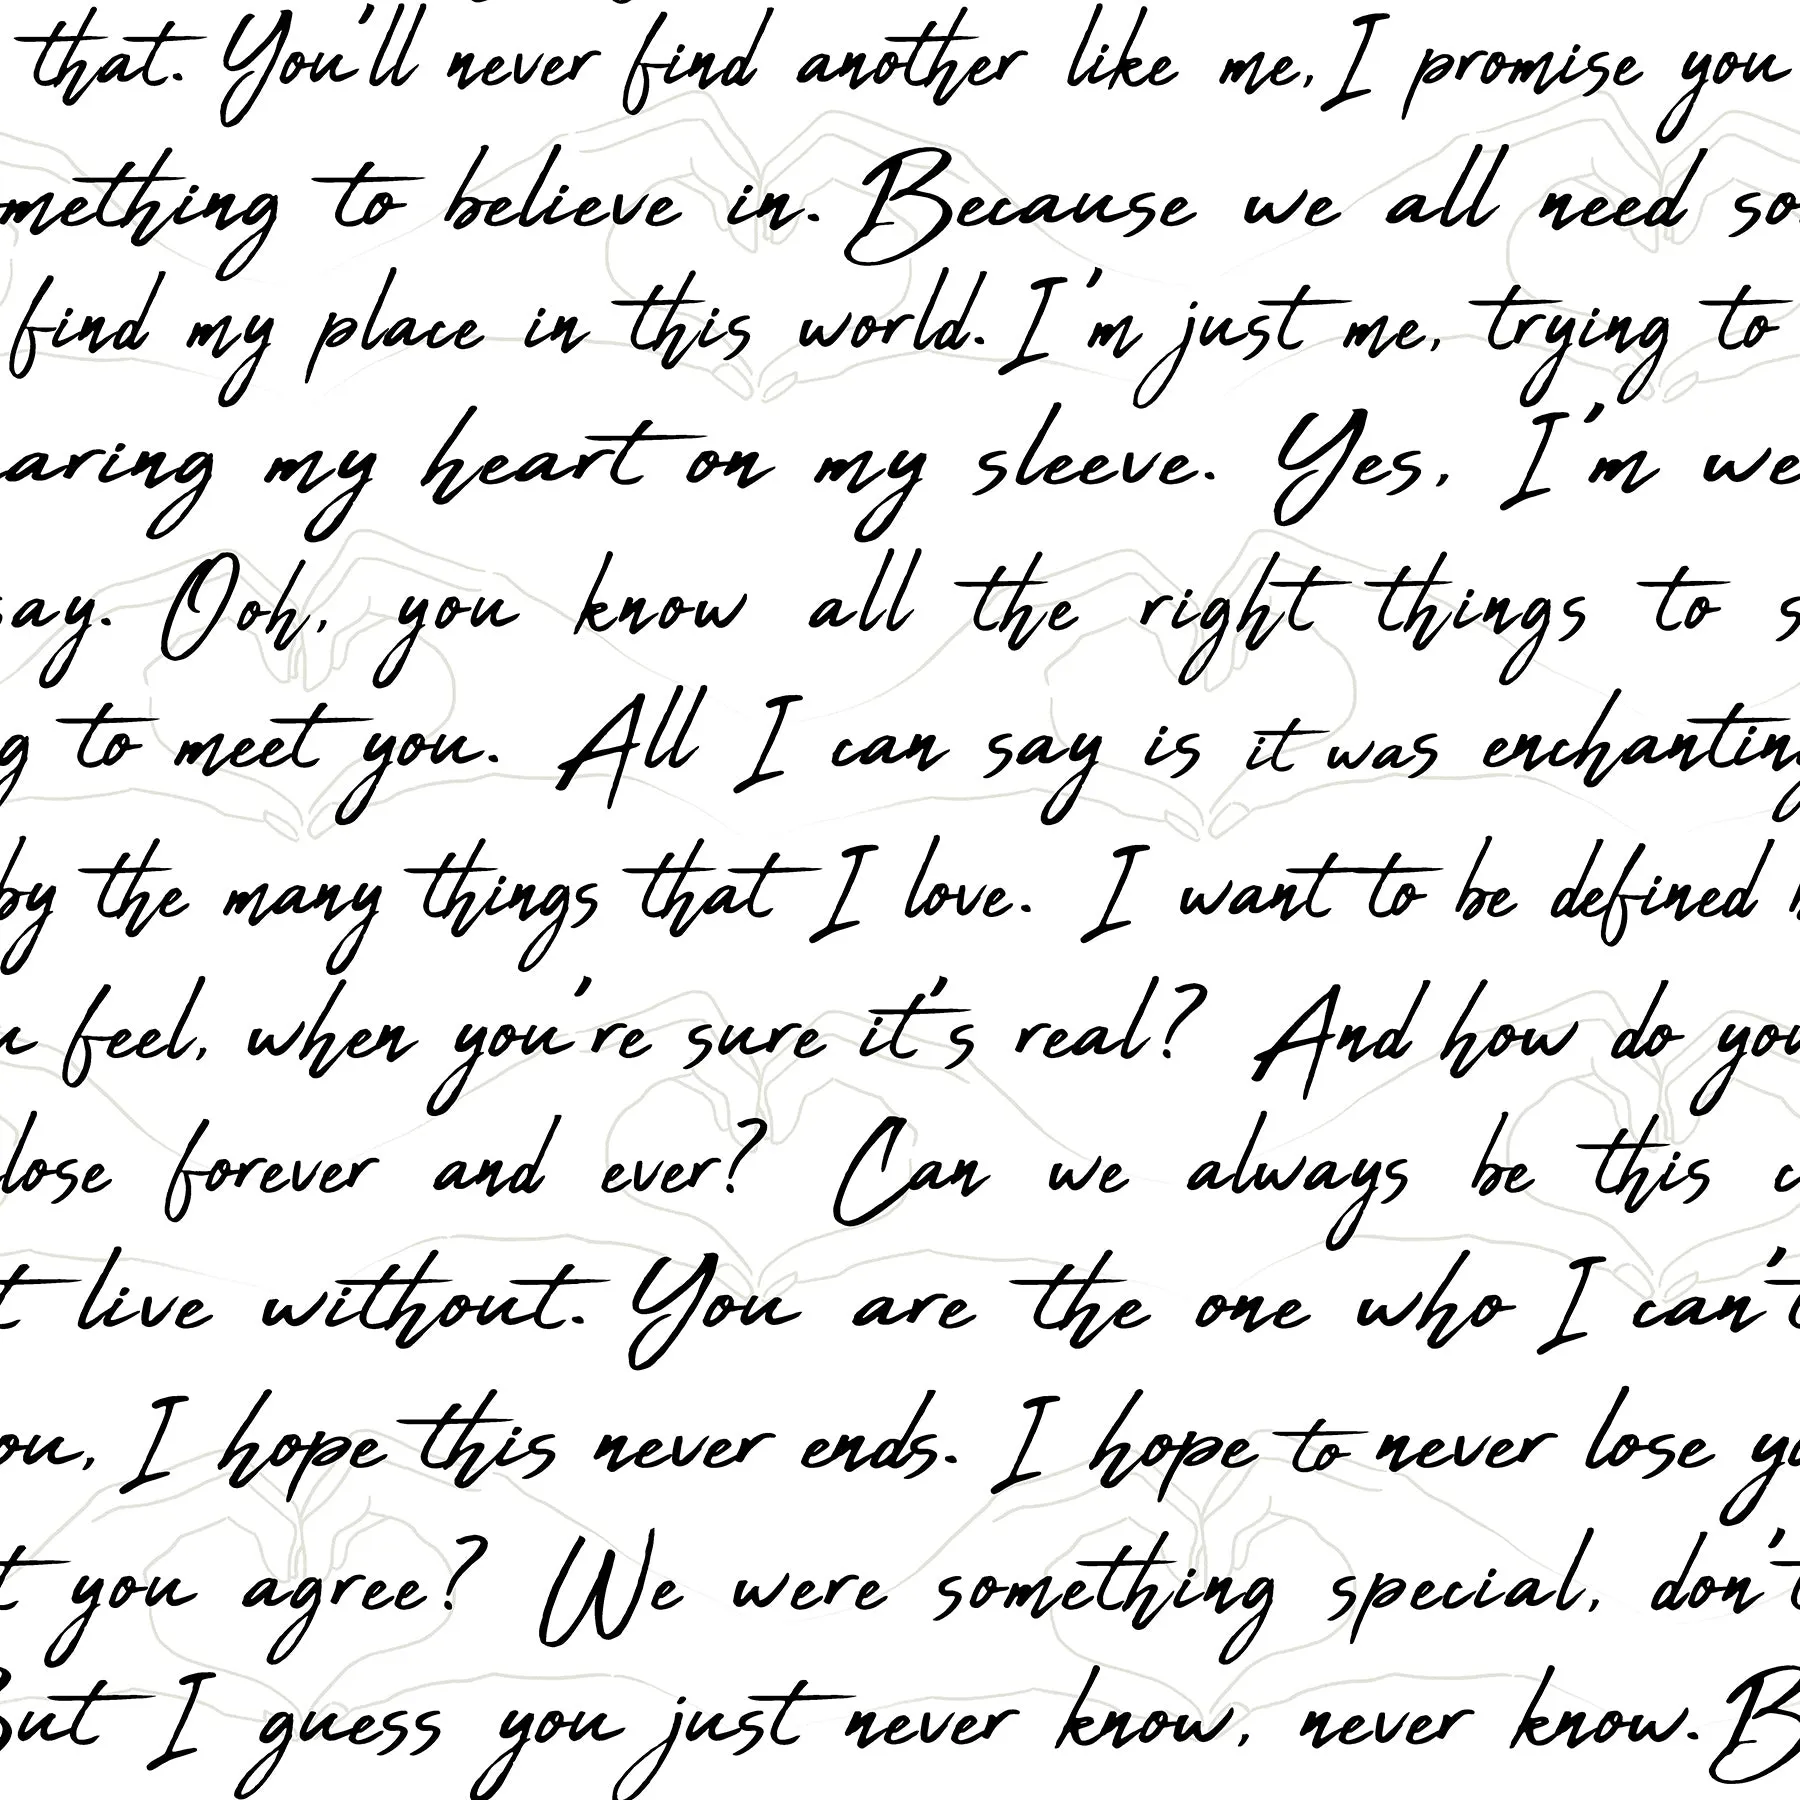 that. You'll never find another like me, I promise you
mething to believe in. Because we all need so
find my place in this world. I'm just me, trying to
aring my heart on my sleeve. Yes, I'm we
say. Ooh, you know all the right things to s
g to meet you. All I can say is it was enchanting
by the many things that I love. I want to be defined b
u feel, when you're sure it's real? And how do you
lose forever and ever? Can we always be this c
t live without. You are the one who I can't
ou, I hope this never ends. I hope to never lose yo
t you agree? We were something special, don't
But I guess you just never know, never know. B